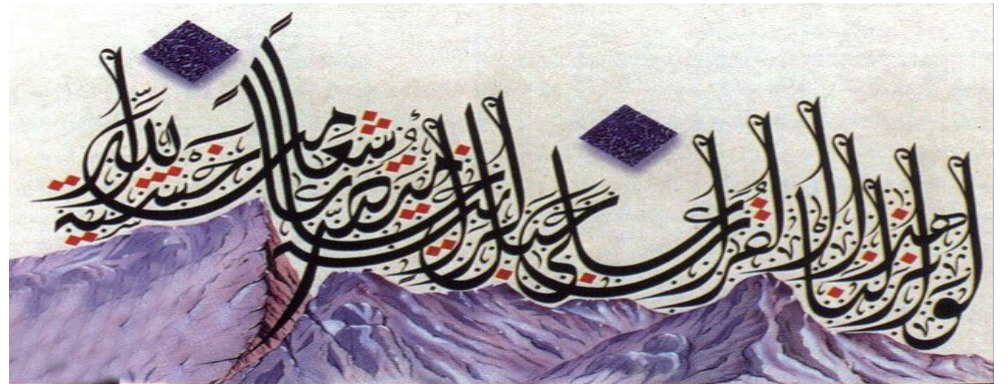 لو أنزلنا هذا القرآن على جبل لرأيته خاشعا متصدعا من خشية الله